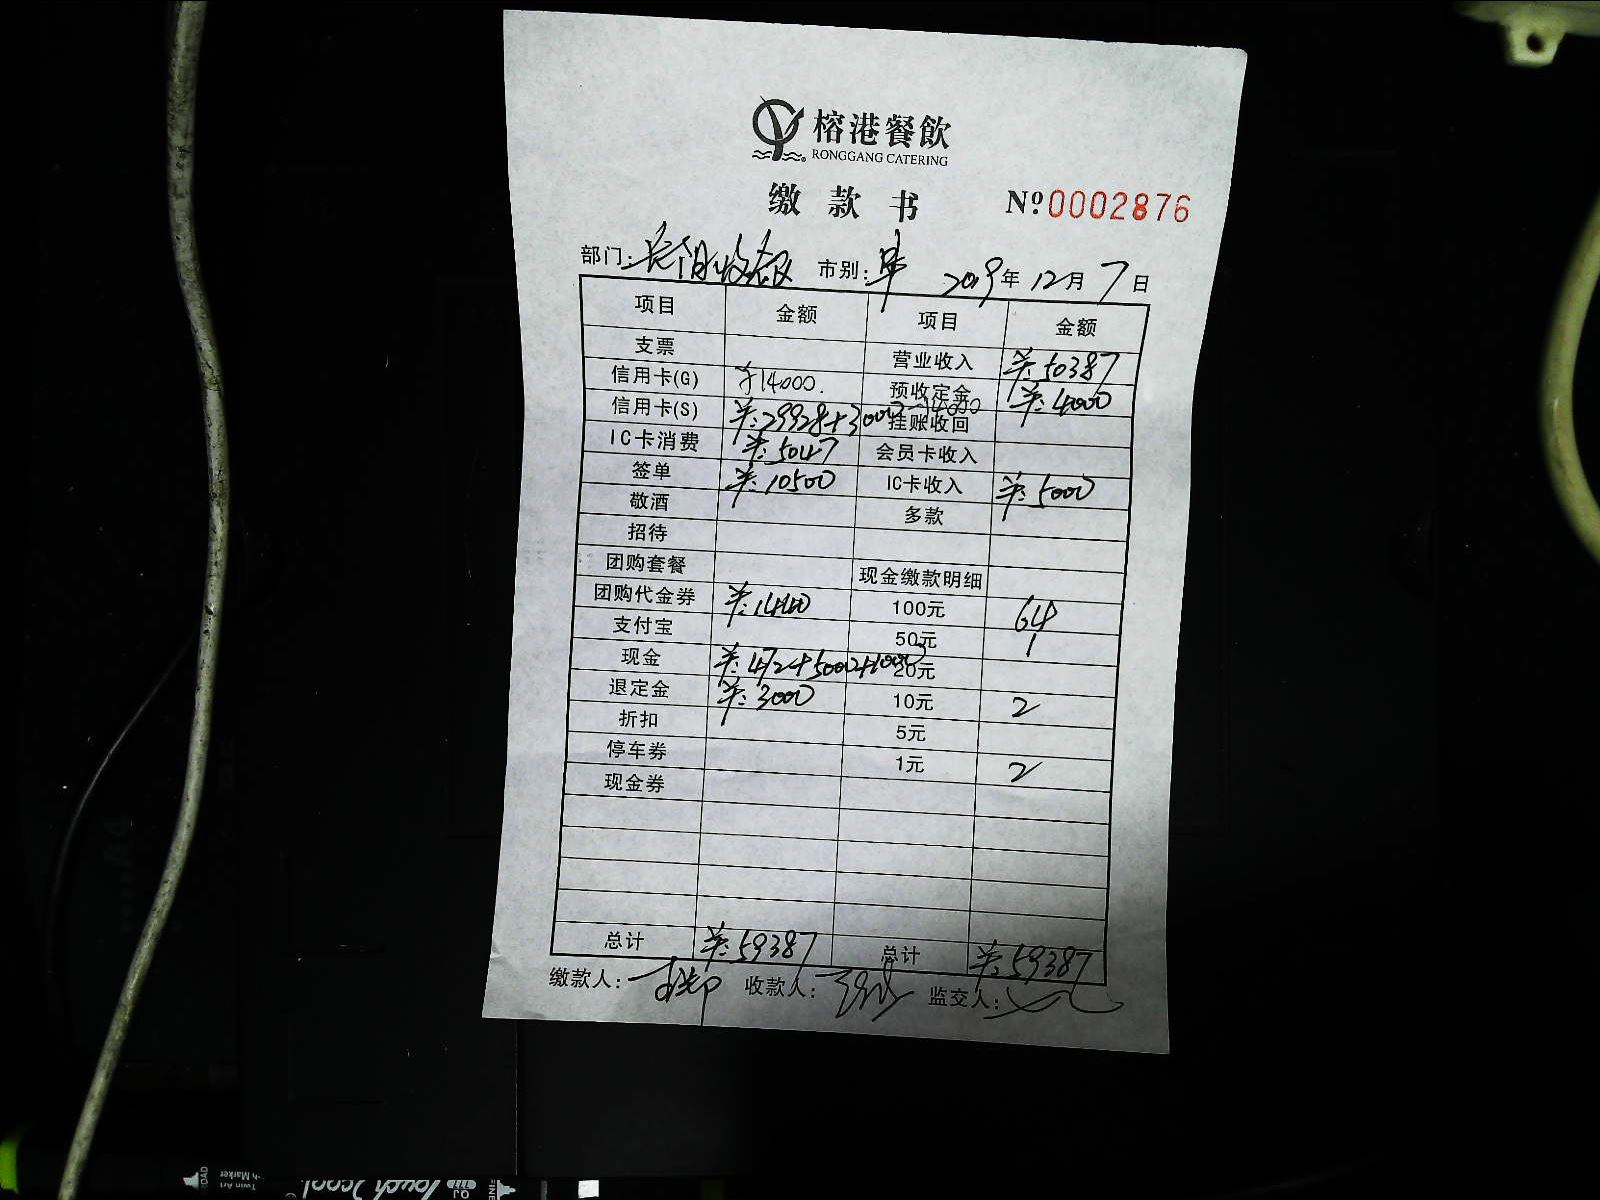 榕港餐飲
RONGGANG CATERING
缴款书 №0002876
部门: 市别: 2019年12月7日
项目 金额 项目 金额
支票 营业收入 ¥:50387
信用卡(G) ¥14000. 预收定金 ¥:4000
信用卡(S) ¥:29928+3000-14000 挂账收回
IC卡消费 ¥:5047 会员卡收入
签单 ¥:10500 IC卡收入 ¥:5000
敬酒 多款
招待
团购套餐 现金缴款明细
团购代金券 ¥:1440 100元 64
支付宝 50元 1
现金 ¥:472+5000+1000 20元
退定金 ¥:3000 10元 2
折扣 5元
停车券 1元 2
现金券
总计 ¥:59387 总计 ¥:59387
缴款人: 收款人: 监交人:
Touch 2cool
Twin Art